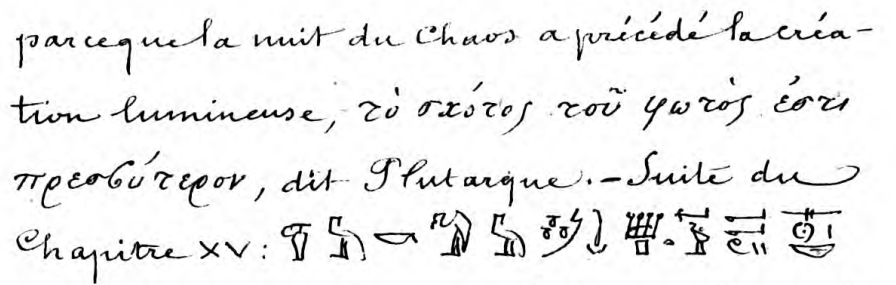 parceque la nuit du Chaos a précédé la créa-
tion lumineuse, τὸ σκότος τοῦ φωτὸς ἐστι
πρεσϐύτερον, dit Plutarque. – Suite du
Chapitre XV :